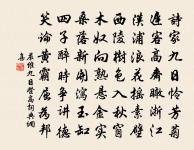 詩家九日怜芳菊
遲客高齋瞰浙江
漢浦浪花搖素壁
西陵樹色入秋窗
木奴向熟懸金實
桑落新開瀉玉缸
四子醉時爭講德
笑論黃霸屈爲邦
嚴維九日登高詞典網
集